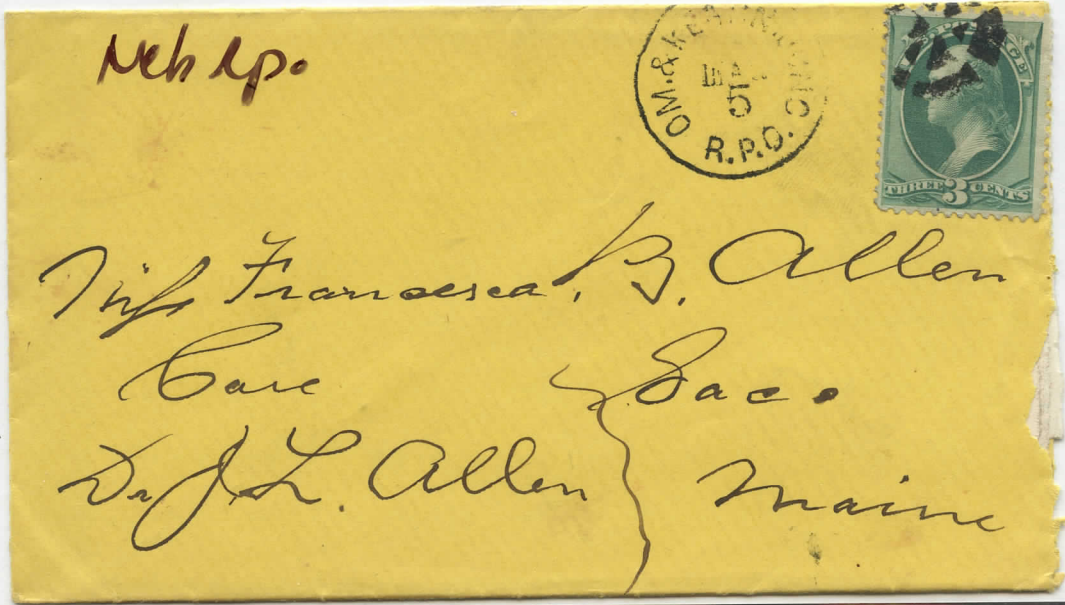 Neb rp.
OM. & KEARN
5
R.P.O.
POSTAGE
THREE 3 CENTS
Miss Francesca. B. Allen
Care
Dr J. L. Allen
Saco
Maine